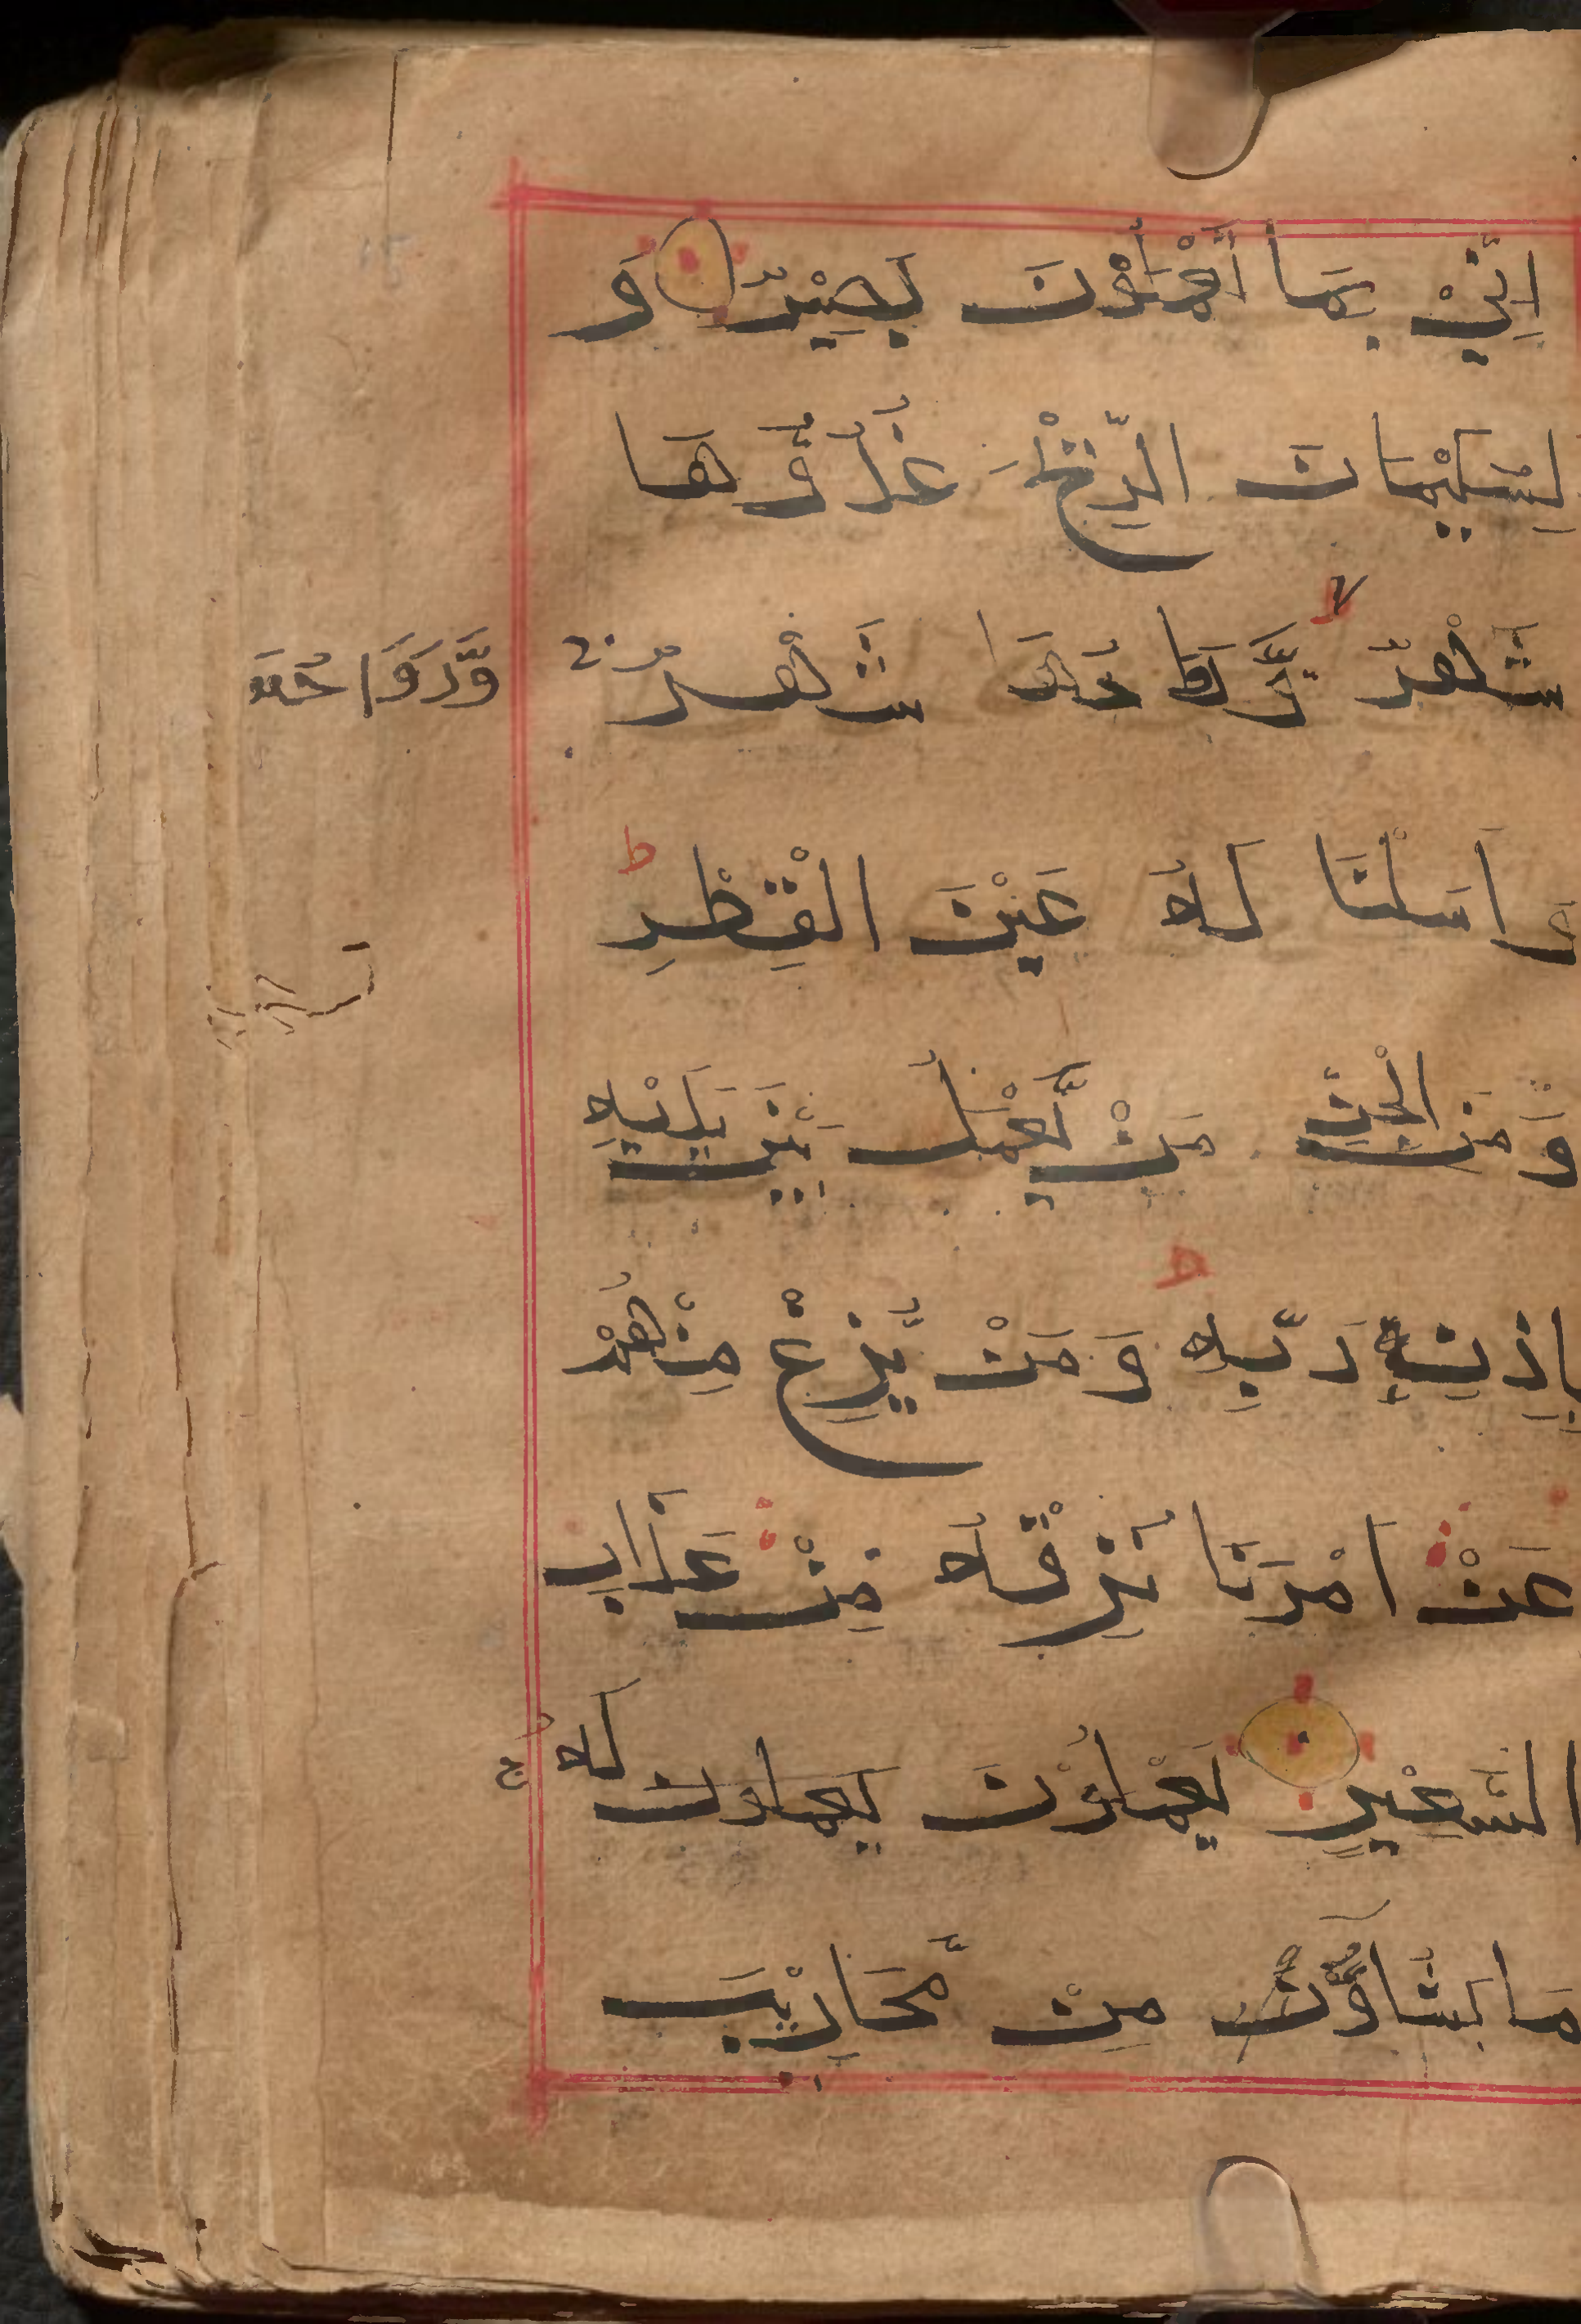 اِنِّيْ بِمَا تَعْمَلُوْنَ بَصِيْرٌ وَ
لِسُلَيْمَانَ الرِّيْحَ غُدُوُّهَا
شَهْرٌ وَّرَوَاحُهَا شَهْرٌ وَّرَوَاحُهَا
وَاَسَلْنَا لَهُ عَيْنَ الْقِطْرِ
وَمِنَ الْجِنِّ مَنْ يَّعْمَلُ بَيْنَ يَدَيْهِ
بِاِذْنِ رَبِّهِ وَمَنْ يَّزِغْ مِنْهُمْ
عَنْ اَمْرِنَا نُذِقْهُ مِنْ عَذَابِ
السَّعِيْرِ يَعْمَلُوْنَ يعملون لَهُ
مَا يَشَاءُ مِنْ مَّحَارِيْبَ